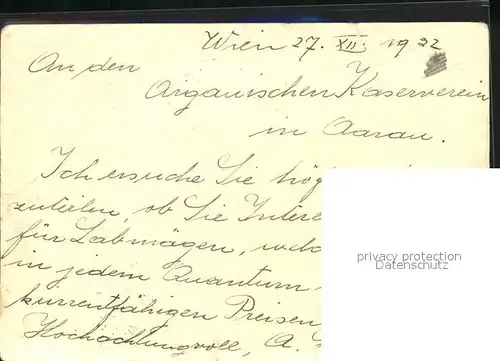 Wien 27. XII. 1932
An den
Argauischen Kaserverein
in Aarau.
Ich ersuche Sie
zuteilen, ob Sie
für Labmägen,
in jedem Quantum
kurrentfähigen Preisen
Hochachtungvoll, A.
privacy protection
Datenschutz